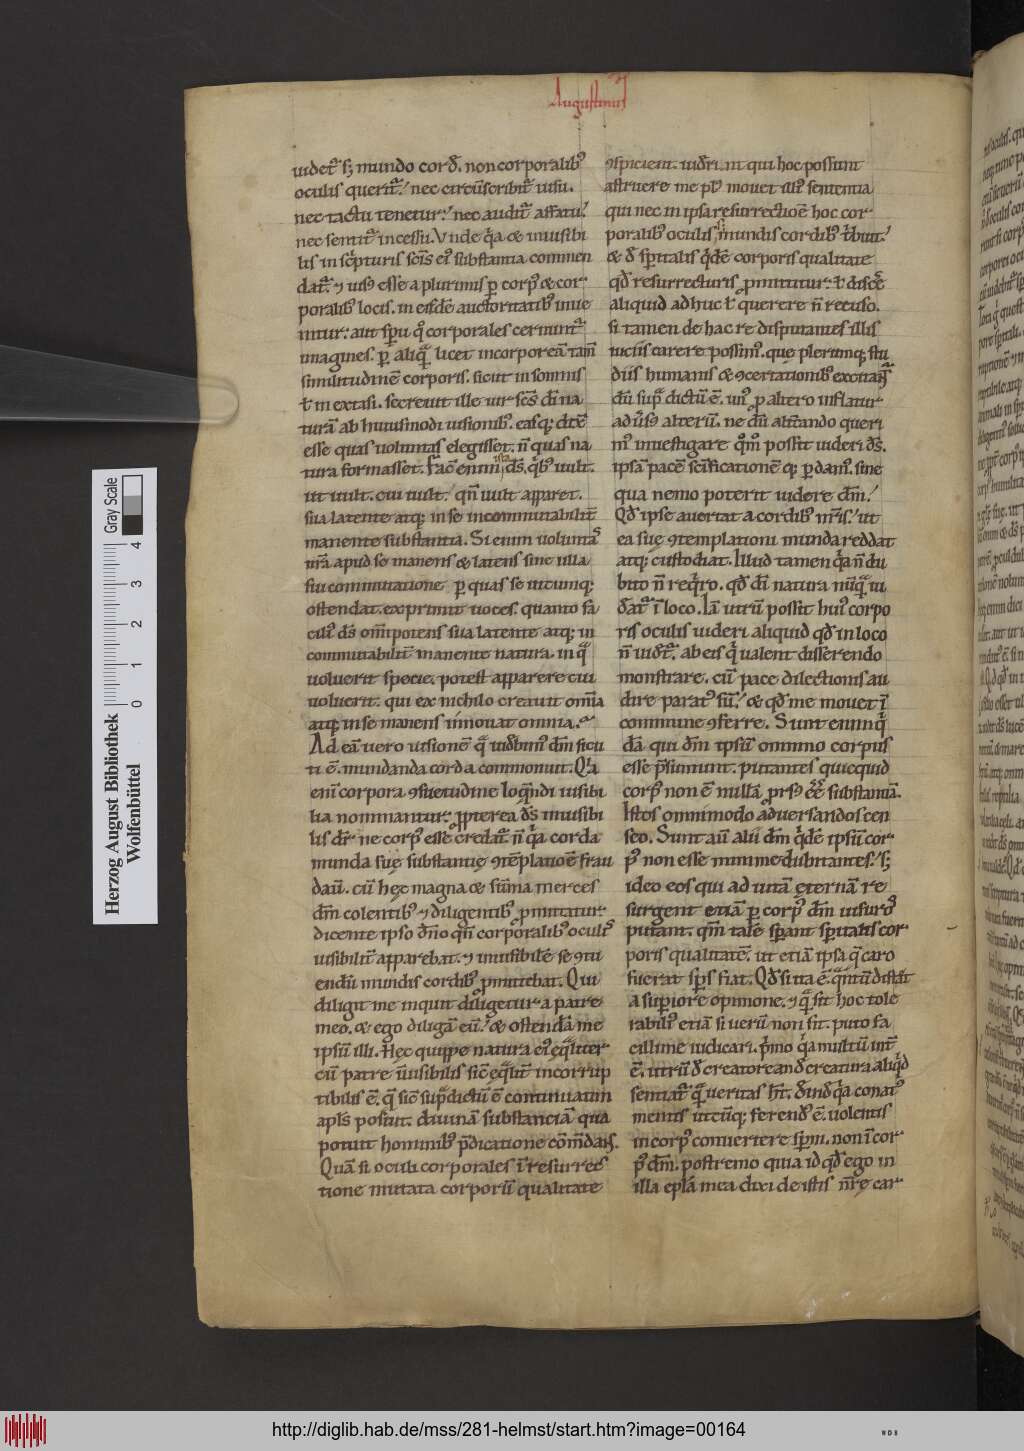 Augustinus
uidet᷑ s; mundo cord̄. non corporalib᷒
oculis querit᷑. nec circūscribit᷑ uisu.
nec tactu tenetur. nec audit᷑ affatu.
nec sentit᷑ incessu. Vnde q̇a & inuisibi
lis in sc̄pturis sc̄is ei᷒ substantia commen
dat᷑. ⁊ uis᷒ esse a plurimis ꝑ corp᷒ & cor
poralib᷒ locis. in eisdē auctoritatib᷒ inue
nitur. aut sp̄u q̊ corporales cernunt᷑
imagines. ꝑ aliq̄. licet incorporeā tam̄
similitudinē corporis. sicut in somnis
ł in extasi. secreuit ille uir sc̄s dī na
turā ab huiusmodi uisionib᷒. easq; dix̄
esse quas uoluntas elegisset. n̄ quas na
tura formasset. ds̄. q̇b᷒ uult.
ut uult. cui uult. qn̄ uult apparet.
sua latente atq; in se incommutabilit̄
manente substantia. Si enim uoluntas
nr̄a. apud se manens & latens sine ulla
sui commutatione ꝑ quas se utcumq;
ostendat. exprimit uoces. quanto fa
cili᷒ ds̄ om̄ipotens sua latente atq; in
commutabilit̄ manente natura. in q̄
uoluerit specie. potest apparere cui
uoluerit. qui ex nichilo creauit om̄ia
atq; in se manens innouat omnia.
Ad eā uero uisionē q̄ uidebim᷒ dm̄ sicu
ti ē. mundanda corda commonuit. Q̇a
enī corpora ꝯsuetudine loq̄ndi uisibi
lia nominantur. ꝓpterea ds̄ inuisibi
lis dr̄. ne corp᷒ esse credat᷑. n̄ q̇a corda
munda suę substantię ꝯtēplatiōe frau
dau̅. cū hęc magna & sūma merces
dm̄ colentib᷒ ⁊ diligentib᷒ ꝓmittatur
dicente ipso dn̄o qn̄ corporalib᷒ oculis
uisibilit̄ apparebat. ⁊ inuisibilē se ꝯtu
endū mundis cordib᷒ ꝓmittebat. Qui
diligit me inquit diligetur a patre
meo. & ego diligā eū. & ostendā me
ipsū illi. Hęc quippe natura ei᷒ ęq̄liter
cū patre inuisibilis sic̄ ęq̄lit̄ incorrup
tibilis ē. q̄ sic̄ sup̄dictū ē continuatim
apls̄ posuit. diuinā substanciā qua
potuit hominib᷒ p̄dicatione cōm̄dans.
Quā si oculi corporales ī resurrec
tione mutata corporū qualitate
ꝯspiciant. uid̄ri. nt qui hoc possunt
astruere me p̄t̄ mouet illi᷒ sententia
qui nec in ipsa resurrectiōe hoc cor
poralib᷒ oculis s; mundis cordib᷒ t̄buit.
& d̄ sp̄italis q̇dē corporis qualitate
qd̄ resurrecturis ꝓmittitur. ł discēr̄
aliquid adhuc ł querere n̄ recuso.
si tamen de hac re disputantes illis
uiciis carere possim᷒. que plerumq; stu
diis humanis & ꝯcertationib᷒ excitans᷑
dū sup̄ dictū ē. un᷒ ꝓ altero inflatur
aduers᷒ alterū. ne dū alt̄cando queri
m᷒ inuestigare q̊m̊ possit uideri ds̄.
ipsā pacē sc̄ificationē q; ꝑdam᷒. sine
qua nemo poterit uidere dm̄.
Qd̄ ipse auertat a cordib᷒ nr̄is. ut
ea suę ꝯtemplationi munda reddat
atq; custodiat. Illud tamen q̇a n̄ du
bito n̄ req̇ro. qd̄ dī natura nūq̄ ui
deat᷑ ī loco. Iā utrū possit hui᷒ corpo
ris oculis uideri aliquid qd̄ in loco
n̄ uidet᷑. ab eis q̇ ualent disserendo
monstrare. cū pace dilectionis au
dire parat᷒ sū. & qd̄ me mouet ī
commune ꝯferre. Sunt enim q̇
dā qui dm̄ ipsū omnino corpus
esse p̄sumunt. putantes quicquid
corp᷒ non ē nullā ꝓrs᷒ eē substantiā.
Istos omnimodo aduersandos cen
seo. Sunt aū alii dm̄ q̇dē ipsū cor
p᷒ non esse minime dubitantes. s;
ideo eos qui ad uitā eternā re
surgent etiā ꝑ corp᷒ dm̄ uisuros
putant. qm̄ talē sp̄ant sp̄italis cor
poris qualitatē. ut etiā ipsa q̄ caro
fuerat sp̄s fiat. Qd̄ si ita ē. q̄ntū distat
a supiore opinione. ⁊ q̄ sit hoc tole
rabili᷒ etiā si uerū non sit. puto fa
cillime iudicari. p̄mo q̇a multū int̄
ē. utrū d̄ creatore an d̄ creatura aliq̇d
sentiat᷑ q̄ ueritas ht̄. deinde q̇a conat᷒
mentis utcūq; ferend᷒ ē. uolentis
in corp᷒ conuertere sp̄m. non ī cor
p᷒ dm̄. postremo quia id qd̄ ego in
illa epl̄a mea dixi de istis nr̄e car
Herzog August Bibliothek
Wolfenbüttel
Gray Scale
0 1 2 3 4
http://diglib.hab.de/mss/281-helmst/start.htm?image=00164